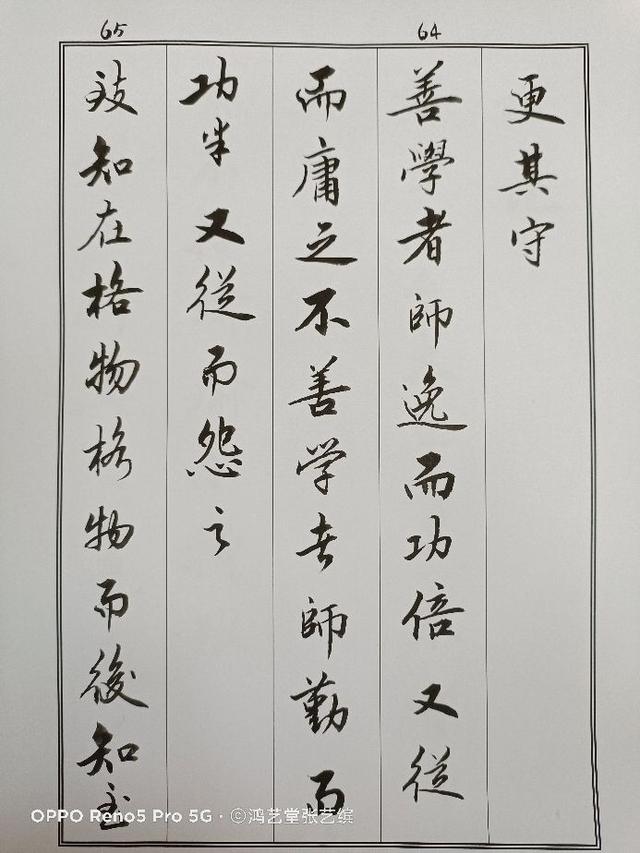 更其守
64
善學者師逸而功倍又從
而庸之不善学者師勤而
功半又從而怨之
65
致知在格物格物而後知至
OPPO Reno5 Pro 5G · ©鸿艺堂张艺缤